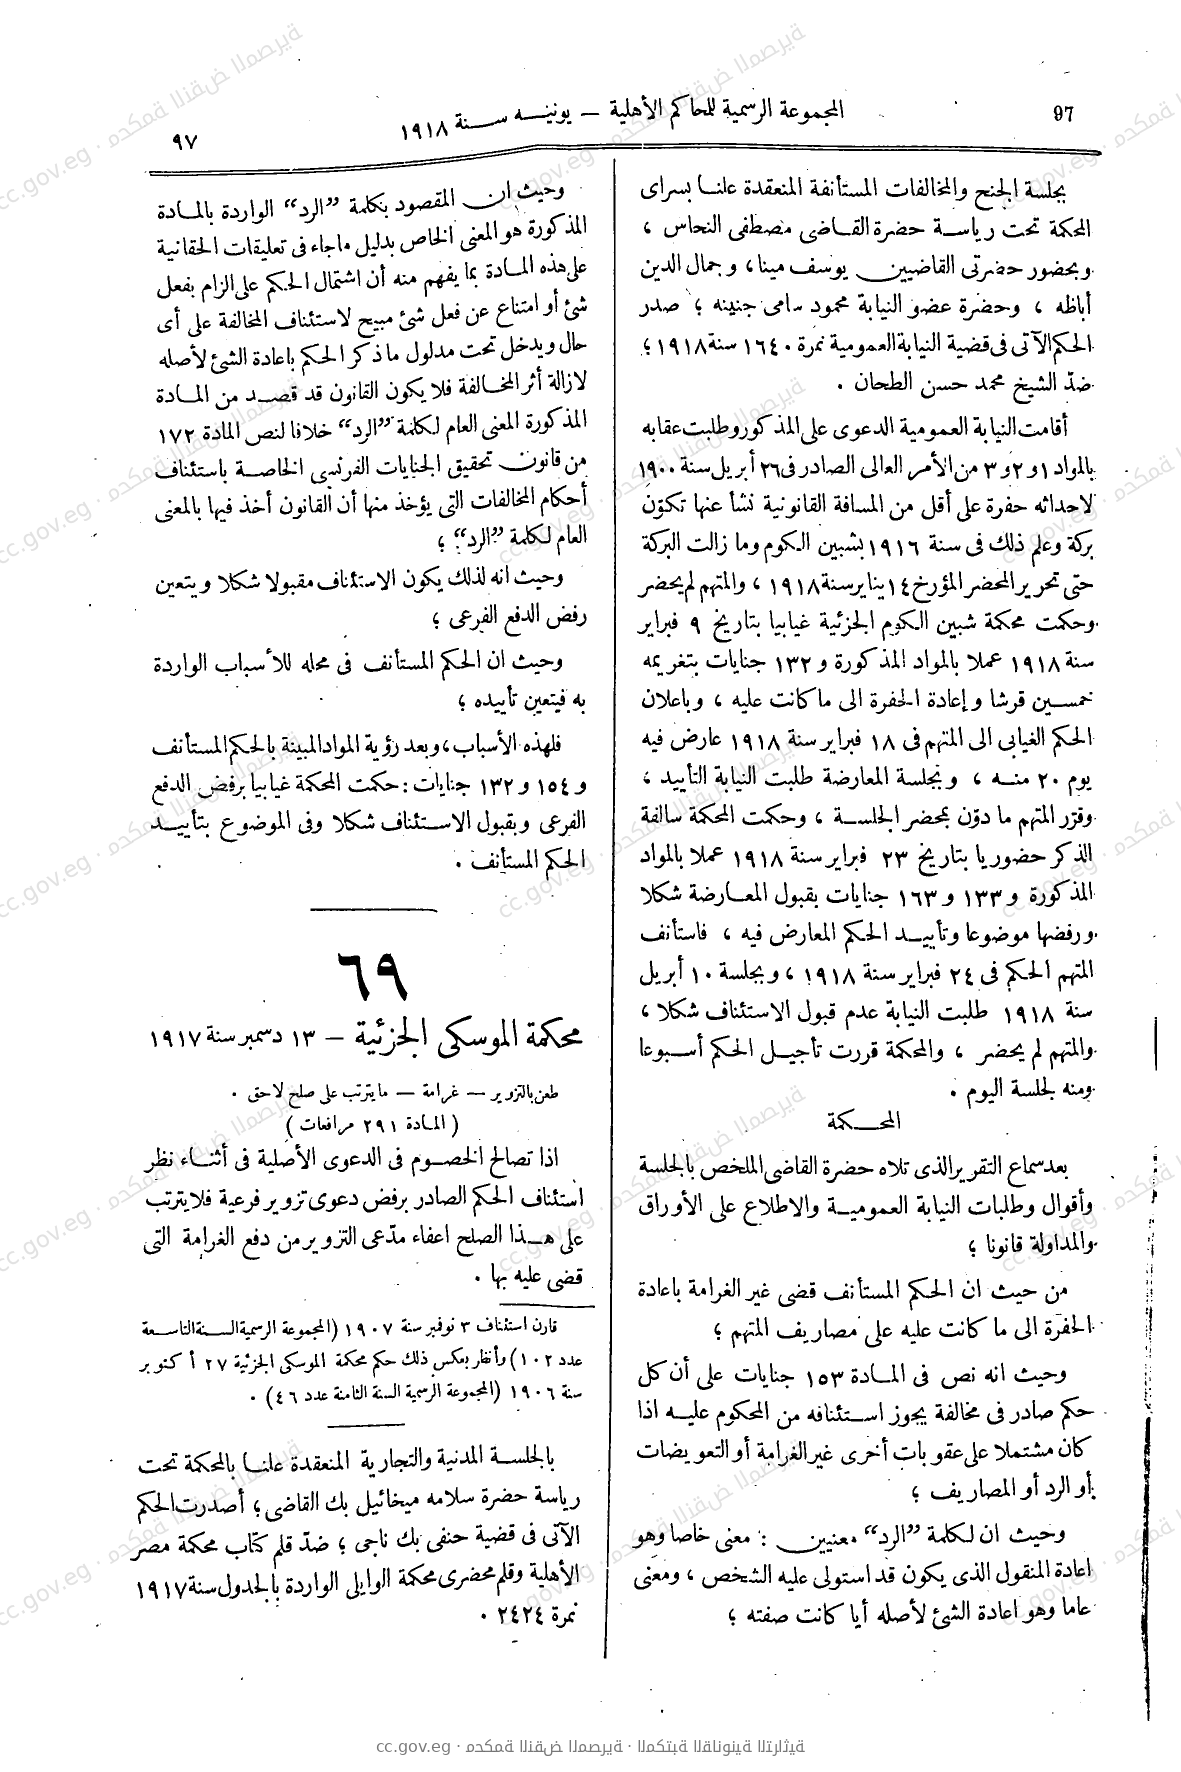 97
المجموعة الرسمية للمحاكم الأهلية — يونيـــه ســـنة ١٩١٨
٩٧
بجلسة الجنح والمخالفات المستأنفة المنعقدة علنـا بسراى
المحكمة تحت رياسـة حضرة القـاضى مصطفى النحاس ،
وبحضور حضرتى القاضيين يوسف مينا، وجمال الدين
أباظه ، وحضرة عضو النيابة محمود سامى جنينه ؛ صدر
الحكم الآتى فى قضية النيابة العمومية نمرة ١٦٤٠ سنة ١٩١٨ ؛
ضدّ الشيخ محمد حسن الطحان .
أقامت النيابة العمومية الدعوى على المذكور وطلبت عقابه
بالمواد ١ و٢ و٣ من الأمر العالى الصادر فى ٢٦ أبريل سنة ١٩٠٠
لاحداثه حفرة على أقل من المسافة القانونية نشأ عنها تكوّن
بركة وعلم ذلك فى سنة ١٩١٦ بشبين الكوم وما زالت البركة
حتى تحرير المحضر المؤرخ ١٤ يناير سنة ١٩١٨ ، والمتهم لم يحضر
وحكمت محكمة شبين الكوم الجزئية غيابيا بتاريخ ٩ فبراير
سنة ١٩١٨ عملا بالمواد المذكورة و ١٣٢ جنايات بتغريمه
خمســين قرشا وإعادة الحفرة الى ما كانت عليه ، وباعلان
الحكم الغيابى الى المتهم فى ١٨ فبراير سنة ١٩١٨ عارض فيه
يوم ٢٠ منـه ، وبجلسة المعارضة طلبت النيابة التأييد ،
وقرّر المتهم ما دوّن بمحضر الجلسـة ، وحكمت المحكمة سالفة
الذكر حضوريا بتاريخ ٢٣ فبراير سنة ١٩١٨ عملا بالمواد
المذكورة و ١٣٣ و ١٦٣ جنايات بقبول المعـارضة شكلا
ورفضها موضوعا وتأييـد الحكم المعارض فيه ، فاستأنف
المتهم الحكم فى ٢٤ فبراير سنة ١٩١٨ ، وبجلسة ١٠ أبريل
سنة ١٩١٨ طلبت النيابة عدم قبول الاستئناف شكلا ،
والمتهم لم يحضر ، والمحكمة قررت تأجيـل الحكم أسـبوعا
ومنه لجلسة اليوم .
المحـــكمة
بعد سماع التقرير الذى تلاه حضرة القاضى الملخص بالجلسة
وأقوال وطلبات النيابة العموميـة والاطلاع على الأوراق
والمداولة قانونا ؛
من حيث ان الحكم المستأنف قضى غير الغرامة باعادة
الحفرة الى ما كانت عليه على مصاريف المتهم ؛
وحيث انه نص فى المـادة ١٥٣ جنايات على أن كل
حكم صادر فى مخالفة يجوز اسـتئنافه من المحكوم عليـه اذا
كان مشتملا على عقوبات أخرى غير الغرامة أو التعويضات
أو الرد أو المصاريف ؛
وحيث ان لكلمة ”الرد“ معنيين : معنى خاصا وهو
اعادة المنقول الذى يكون قد استولى عليه الشخص ، ومعنى
عاما وهو اعادة الشئ لأصله أيا كانت صفته ؛
وحيث ان المقصود بكلمة ”الرد“ الواردة بالمـادة
المذكورة هو المعنى الخاص بدليل ما جاء فى تعليقات الحقانية
على هذه المـادة بما يفهم منه أن اشتمال الحكم على الزام بفعل
شئ أو امتناع عن فعل شئ مبيح لاستئناف المخالفة على أى
حال ويدخل تحت مدلول ما ذكر الحكم باعادة الشئ لأصله
لازالة أثر المخـالفة فلا يكون القانون قد قصـد من المـادة
المذكورة المعنى العام لكلمة ”الرد“ خلافا لنص المادة ١٧٢
من قانون تحقيق الجنايات الفرنسى الخاصـة باستئناف
أحكام المخالفات التى يؤخذ منها أن القانون أخذ فيها بالمعنى
العام لكلمة ”الرد“ ؛
وحيث انه لذلك يكون الاستئناف مقبولا شكلا ويتعين
رفض الدفع الفرعى ؛
وحيث ان الحكم المستأنف فى محله للأسباب الواردة
به فيتعين تأييده ؛
فلهذه الأسباب ، وبعد رؤية المواد المبينة بالحكم المستأنف
و ١٥٤ و ١٣٢ جنايات : حكمت المحكمة غيابيا برفض الدفع
الفرعى وبقبول الاسـتئناف شكلا وفى الموضوع بتأييـد
الحكم المستأنف .
٦٩
محكمة الموسكى الجزئية — ١٣ دسمبر سنة ١٩١٧
طعن بالتزوير — غرامة — ما يترتب على صلح لاحق .
( المـادة ٢٩١ مرافعات )
اذا تصالح الخصـوم فى الدعوى الأصلية فى أثنـاء نظر
استئناف الحكم الصادر برفض دعوى تزوير فرعية فلا يترتب
على هـذا الصلح اعفاء مدّعى التزوير من دفع الغرامة التى
قضى عليه بها .
قارن استئناف ٣ نوفبر سنة ١٩٠٧ (المجموعة الرسمية السـنة التاسعة
عدد ١٠٢) وأنظر بعكس ذلك حكم محكمة الموسكى الجزئية ٢٧ أكتوبر
سنة ١٩٠٦ (المجموعة الرسمية السنة الثامنة عدد ٤٦) .
بالجلسـة المدنية والتجارية المنعقدة علنـا بالمحكمة تحت
رياسة حضرة سلامه ميخائيل بك القاضى ؛ أصدرت الحكم
الآتى فى قضية حنفى بك ناجى ؛ ضدّ قلم كتّاب محكمة مصر
الأهلية وقلم محضرى محكمة الوايلى الواردة بالجدول سنة ١٩١٧
نمرة ٢٤٢٤ .
cc.gov.eg · محكمة النقض المصرية · المكتبة القانونية التراثية